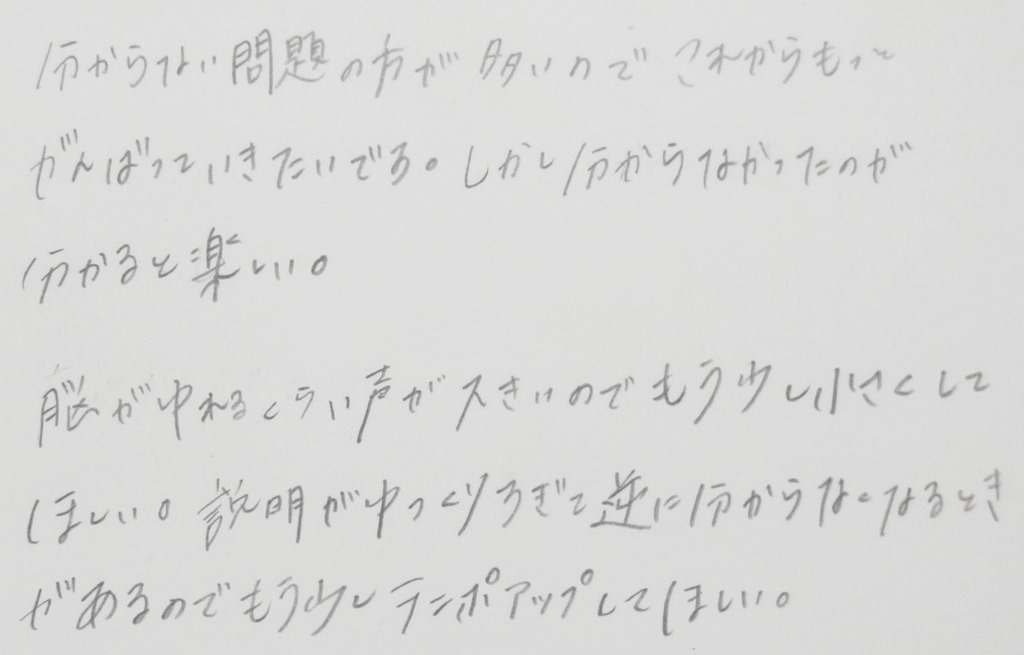 分からない問題の方が多いのでこれからもっと
がんばっていきたいです。しかし分からなかったのが
分かると楽しい。
脳がゆれるくらい声が大きいのでもう少し小さくして
ほしい。説明がゆっくりすぎて逆に分からなくなるとき
があるのでもう少しテンポアップしてほしい。